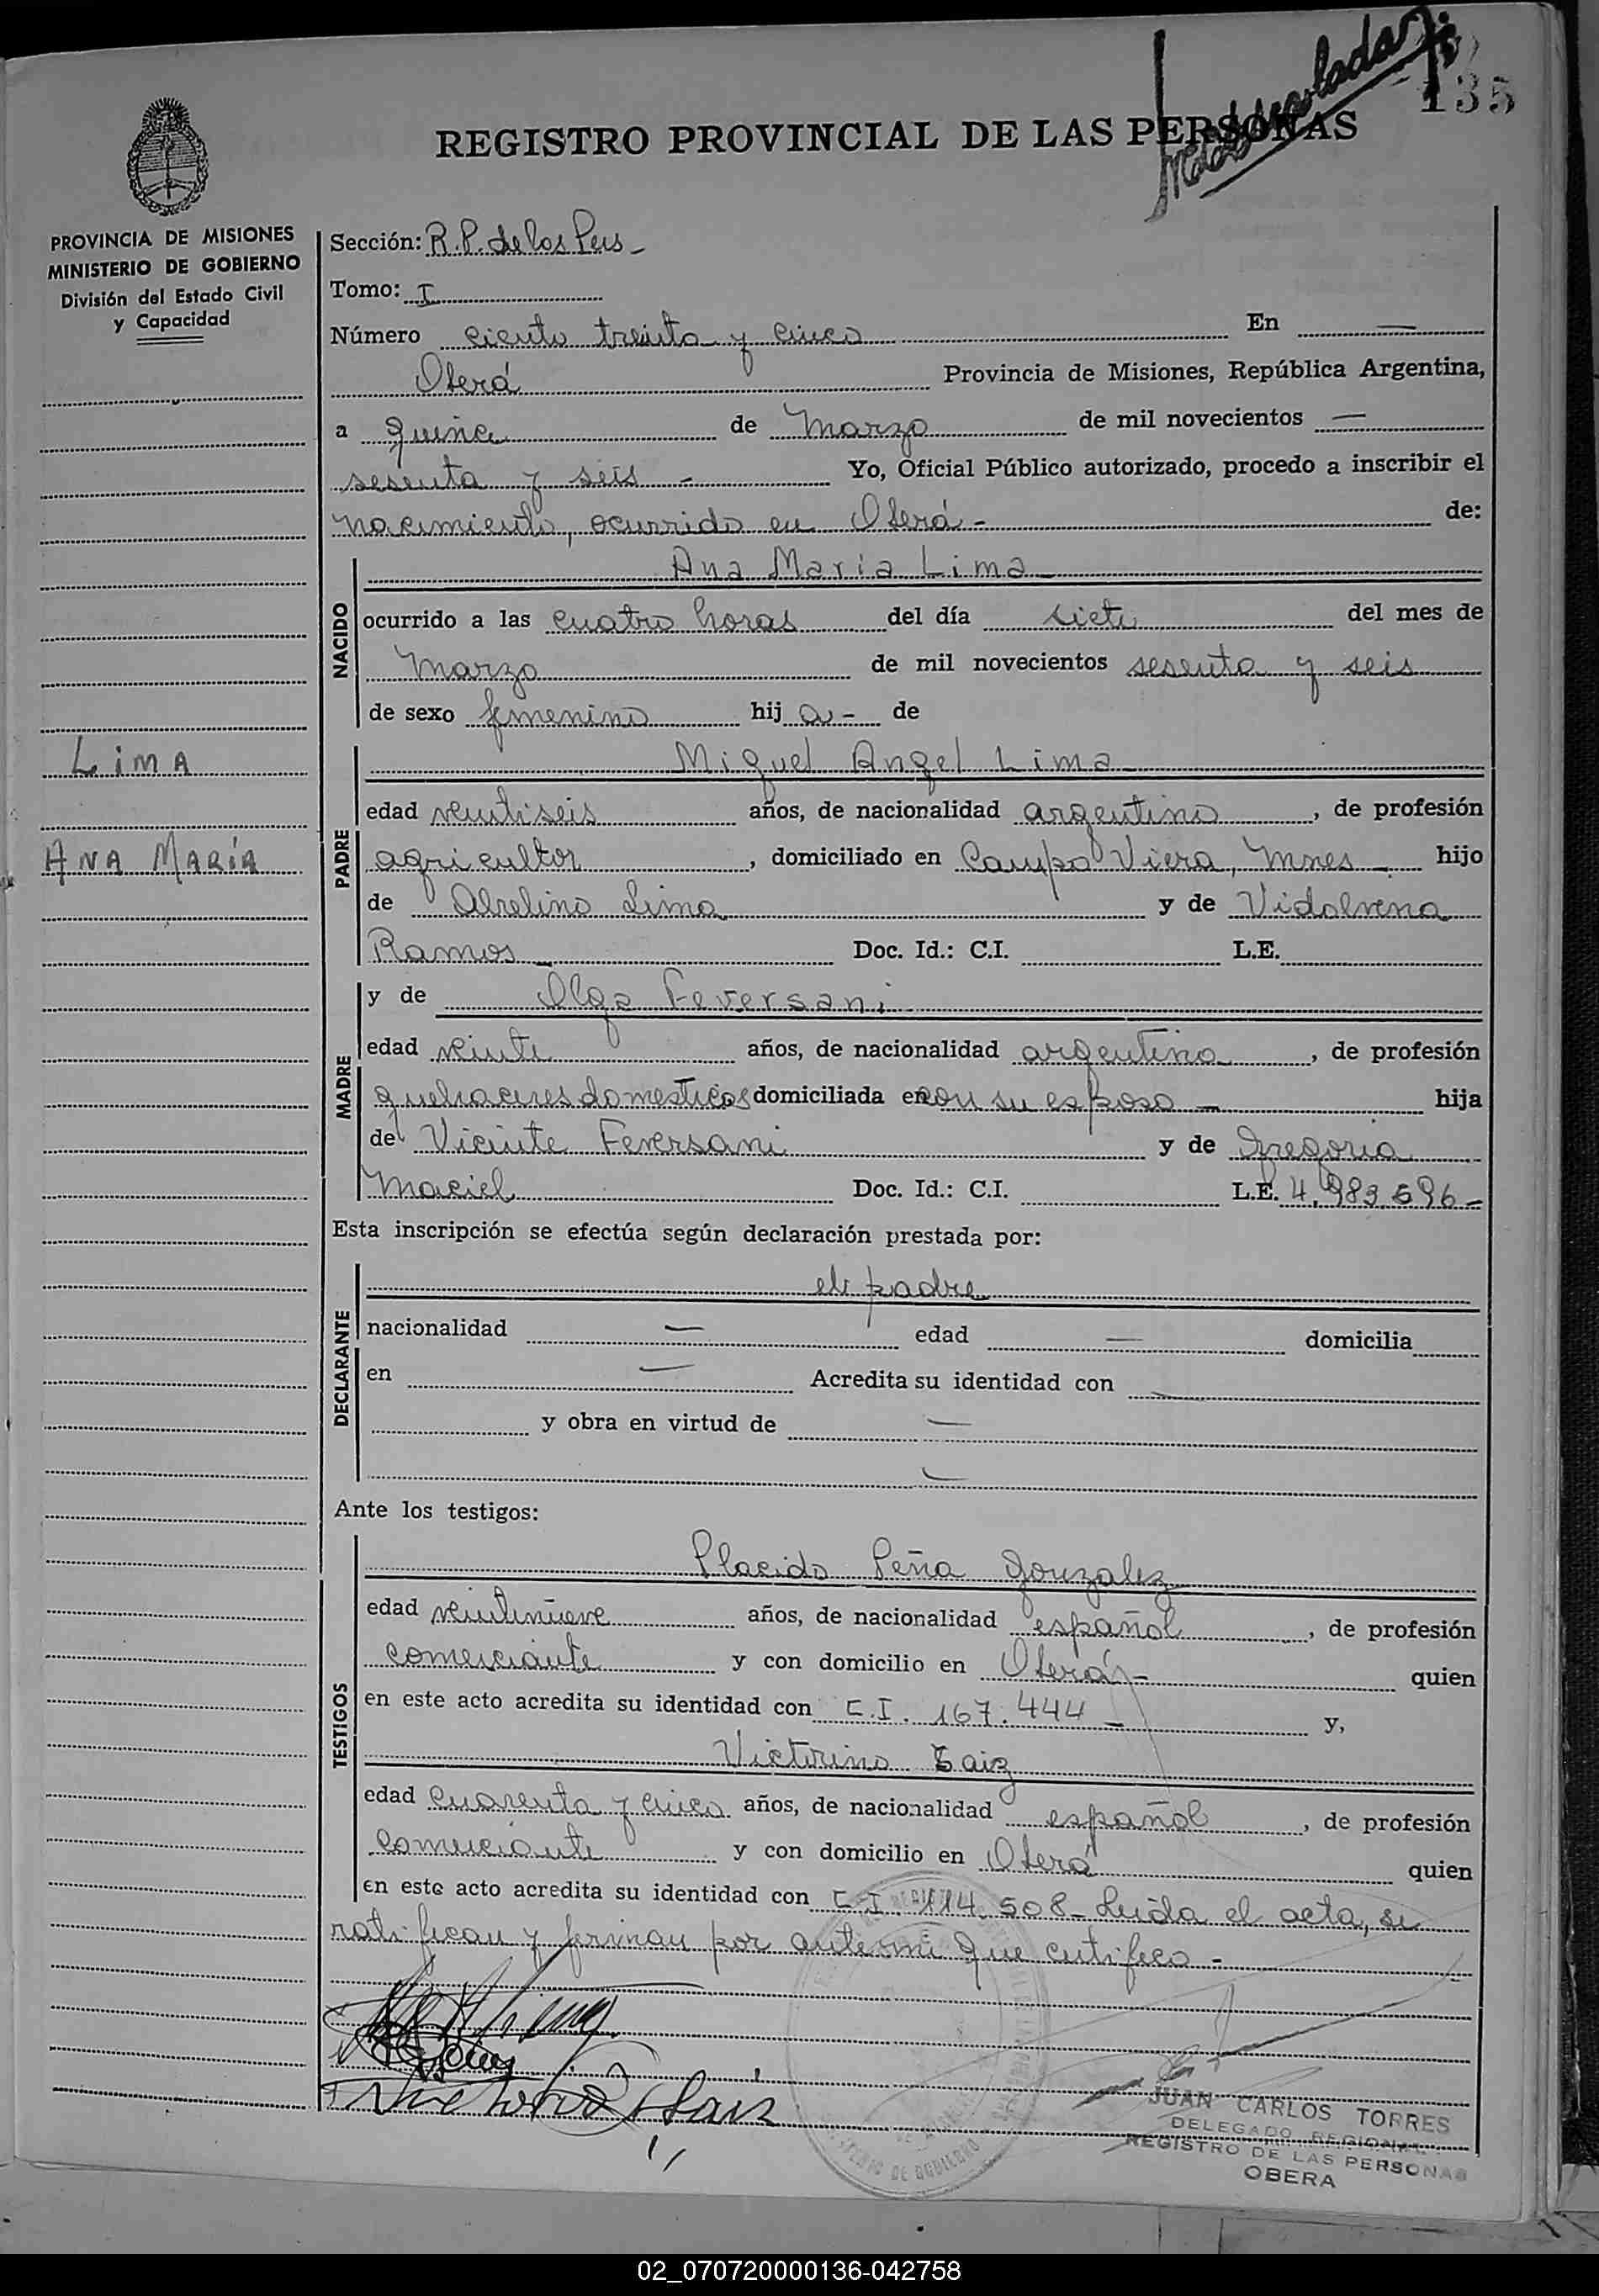 135
REGISTRO PROVINCIAL DE LAS PERSONAS
PROVINCIA DE MISIONES
MINISTERIO DE GOBIERNO
División del Estado Civil
y Capacidad
Lima
Ana María
Sección: R.P. de las Pers -
Tomo: I
Número ciento treinta y cinco En —
Oberá Provincia de Misiones, República Argentina,
a quince de Marzo de mil novecientos —
sesenta y seis - Yo, Oficial Público autorizado, procedo a inscribir el
nacimiento, ocurrido en Oberá - de:
NACIDO
Ana María Lima
ocurrido a las cuatro horas del día siete del mes de
Marzo de mil novecientos sesenta y seis
de sexo femenino hij a - de
PADRE
Miguel Angel Lima
edad veintiseis años, de nacionalidad argentino, de profesión
agricultor, domiciliado en Campo Viera, Mnes - hijo
de Avelino Lima y de Vidalvina
Ramos Doc. Id.: C.I. L.E.
MADRE
y de Olga Feversani
edad veinte años, de nacionalidad argentina, de profesión
quehaceres domesticos domiciliada en con su esposo - hija
de Vicente Feversani y de Gregoria
Maciel Doc. Id.: C.I. L.E. 4.983.596 -
Esta inscripción se efectúa según declaración prestada por:
DECLARANTE
el padre
nacionalidad — edad — domicilia
en — Acredita su identidad con —
y obra en virtud de —
—
Ante los testigos:
TESTIGOS
Placido Peña Gonzalez
edad veintinueve años, de nacionalidad español, de profesión
comerciante y con domicilio en Oberá - quien
en este acto acredita su identidad con C.I. 167.444 - y,
Victorino Saiz
edad cuarenta y cinco años, de nacionalidad español, de profesión
comerciante y con domicilio en Oberá quien
en este acto acredita su identidad con C.I. 114.508 - Leida el acta, se
ratifican y firman por ante mi que certifico -
Victorino Saiz
JUAN CARLOS TORRES
DELEGADO REGIONAL
REGISTRO DE LAS PERSONAS
OBERA
02_070720000136-042758